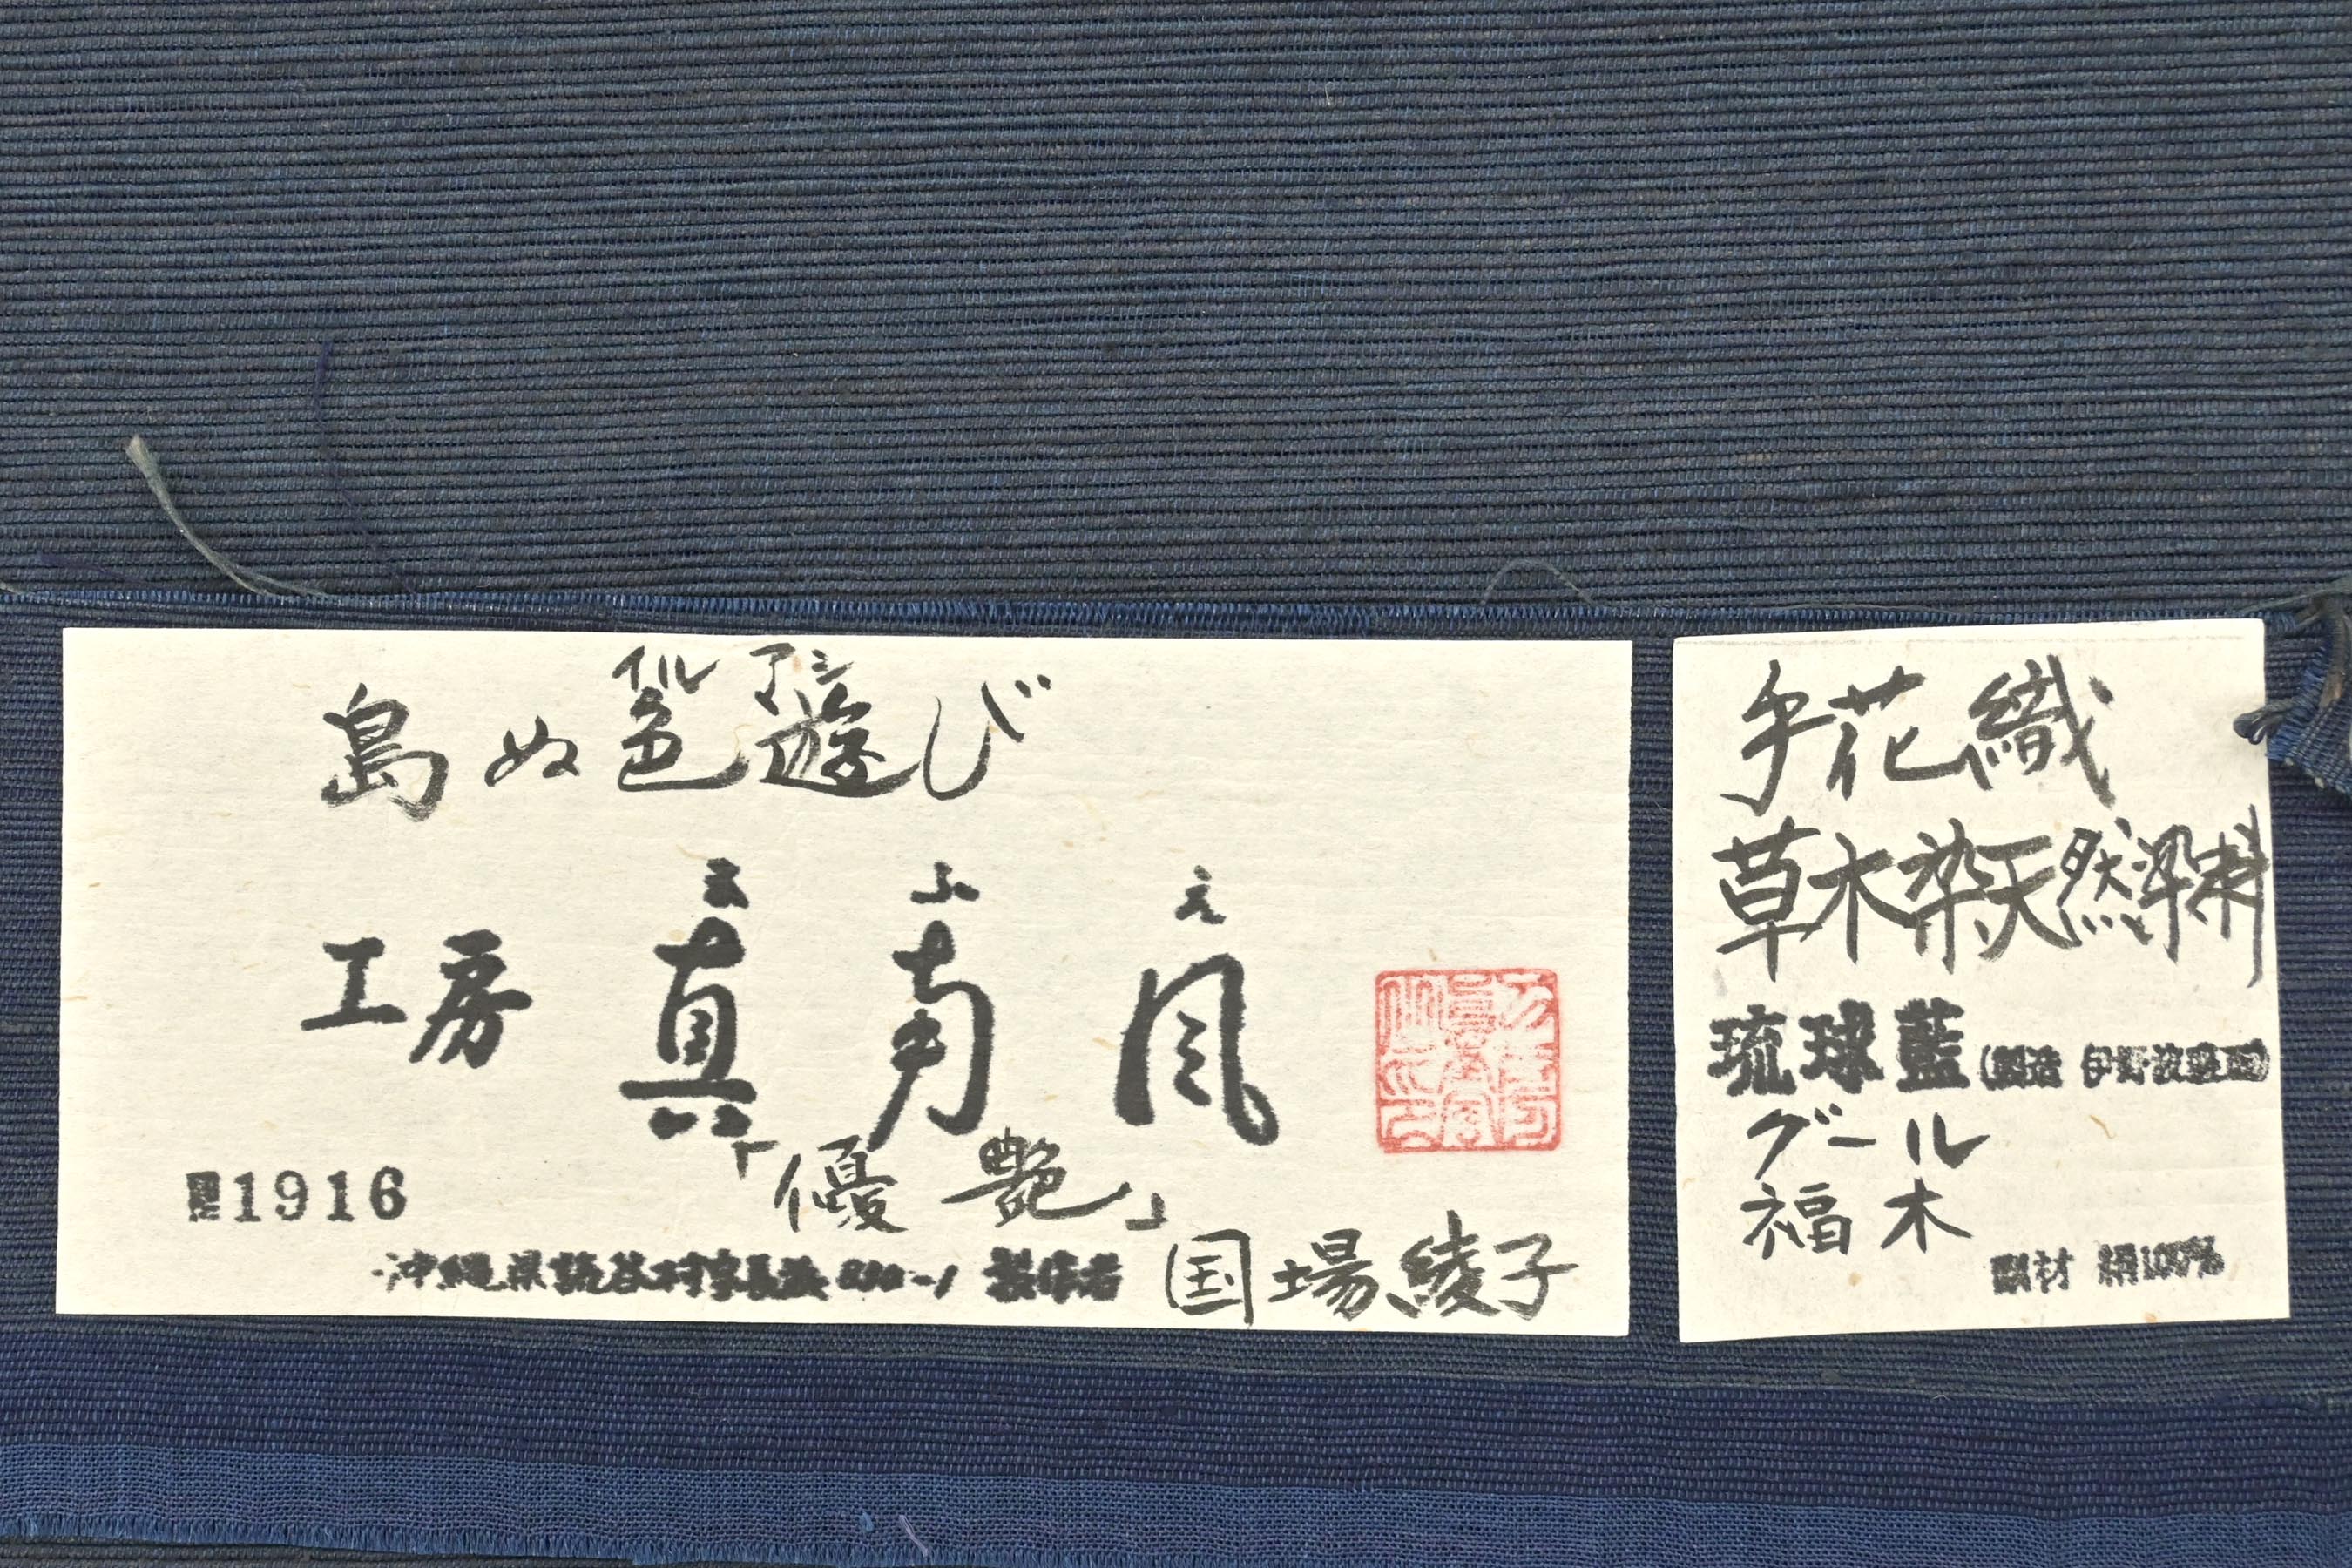 島ぬ色遊び
イル アシ
工房 真南風
ま ふ え
1916
「優艶」
沖縄県読谷村字長浜 製作者 国場綾子
手花織
草木染天然染料
琉球藍(製造 伊野波盛正)
グール
福木
素材 絹100%